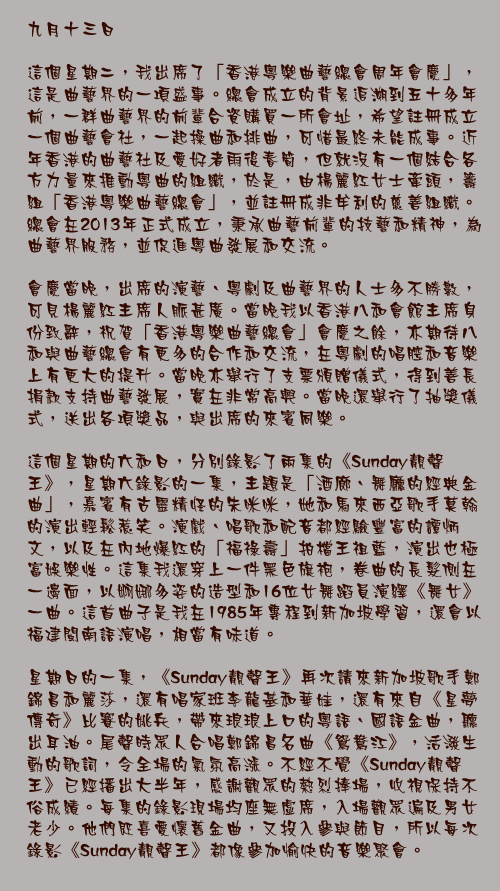 九月十三日
這個星期二，我出席了「香港粵樂曲藝總會周年會慶」，
這是曲藝界的一項盛事。總會成立的背景追溯到五十多年
前，一群曲藝界的前輩合資購買一所會址，希望註冊成立
一個曲藝會社，一起操曲和排曲，可惜最終未能成事。近
年香港的曲藝社及愛好者雨後春筍，但就沒有一個結合各
方力量來推動粵曲的組織，於是，由楊麗紅女士牽頭，籌
組「香港粵樂曲藝總會」，並註冊成非牟利的慈善組織。
總會在2013年正式成立，秉承曲藝前輩的技藝和精神，為
曲藝界服務，並促進粵曲發展和交流。
會慶當晚，出席的演藝、粵劇及曲藝界的人士多不勝數，
可見楊麗紅主席人脈甚廣。當晚我以香港八和會館主席身
份致辭，祝賀「香港粵樂曲藝總會」會慶之餘，亦期待八
和與曲藝總會有更多的合作和交流，在粵劇的唱腔和音樂
上有更大的提升。當晚亦舉行了支票頒贈儀式，得到善長
捐款支持曲藝發展，實在非常高興。當晚還舉行了抽獎儀
式，送出各項獎品，與出席的來賓同樂。
這個星期的六和日，分別錄影了兩集的《Sunday靚聲
王》，星期六錄影的一集，主題是「酒廊、舞廳的經典金
曲」，嘉賓有古靈精怪的朱咪咪，她和馬來西亞歌手莫翰
的演出輕鬆惹笑。演戲、唱歌和配音都經驗豐富的譚炳
文，以及在內地爆紅的「福祿壽」拍檔王祖藍，演出也極
富娛樂性。這集我還穿上一件黑色旗袍，卷曲的長髮側在
一邊面，以婀娜多姿的造型和16位女舞蹈員演繹《舞女》
一曲。這首曲子是我在1985年專程到新加坡學習，還會以
福建閩南語演唱，相當有味道。
星期日的一集，《Sunday靚聲王》再次請來新加坡歌手鄭
錦昌和麗莎，還有唱家班李龍基和華娃，還有來自《星夢
傳奇》比賽的姚兵，帶來琅琅上口的粵語、國語金曲，聽
出耳油。尾聲時眾人合唱鄭錦昌名曲《鴛鴦江》，活潑生
動的歌詞，令全場的氣氛高漲。不經不覺《Sunday靚聲
王》已經播出大半年，感謝觀眾的熱烈捧場，收視保持不
俗成績。每集的錄影現場均座無虛席，入場觀眾遍及男女
老少。他們既喜愛懷舊金曲，又投入參與節目，所以每次
錄影《Sunday靚聲王》都像參加愉快的音樂聚會。